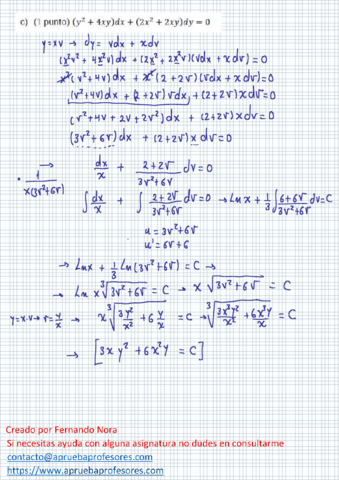 c) (1 punto) (y² + 4xy)dx + (2x² + 2xy)dy = 0
y=xv → dy = vdx + xdv
(x²v² + 4x²v)dx + (2x² + 2x²v)(vdx + xdv)=0
x²(v²+4v)dx + x²(2+2v)(vdx + xdv)=0
(v²+4v)dx + (2+2v)vdx + (2+2v)xdv=0
(v²+4v + 2v + 2v²)dx + (2+2v)xdv=0
(3v²+6v)dx + (2+2v)xdv=0
1/x(3v²+6v) → dx/x + (2+2v)/(3v²+6v) dv=0
∫dx/x + ∫(2+2v)/(3v²+6v) dv=0 → Lnx + 1/3 ∫(6+6v)/(3v²+6v) dv=C
u = 3v²+6v
u' = 6v+6
→ Lnx + 1/3 Ln(3v²+6v) = C →
→ Ln x ∛(3v²+6v) = C → x ∛(3v²+6v) = C
y=x·v → v=y/x → x ∛(3y²/x² + 6y/x) = C → ∛(3x³y²/x² + 6x³y/x) = C
→ [3xy² + 6x²y = C]
Creado por Fernando Nora
Si necesitas ayuda con alguna asignatura no dudes en consultarme
contacto@apruebaprofesores.com
https://www.apruebaprofesores.com